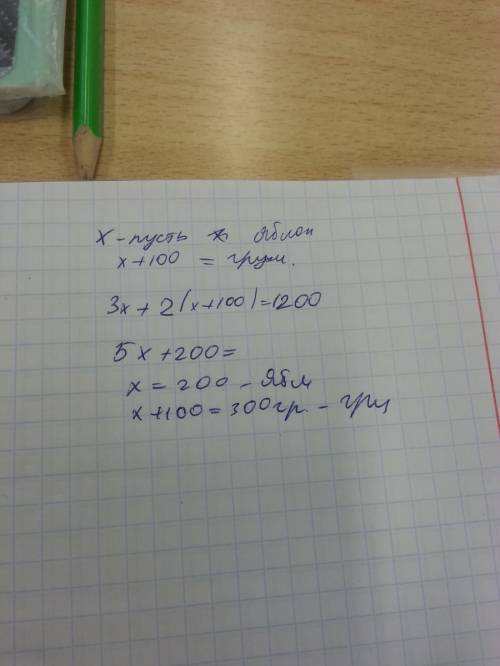 x - пусть x яблок
x+100 = груш.
3x + 2(x+100)=1200
5x+200=
x = 200 - Ябл
x+100=300гр. - груш